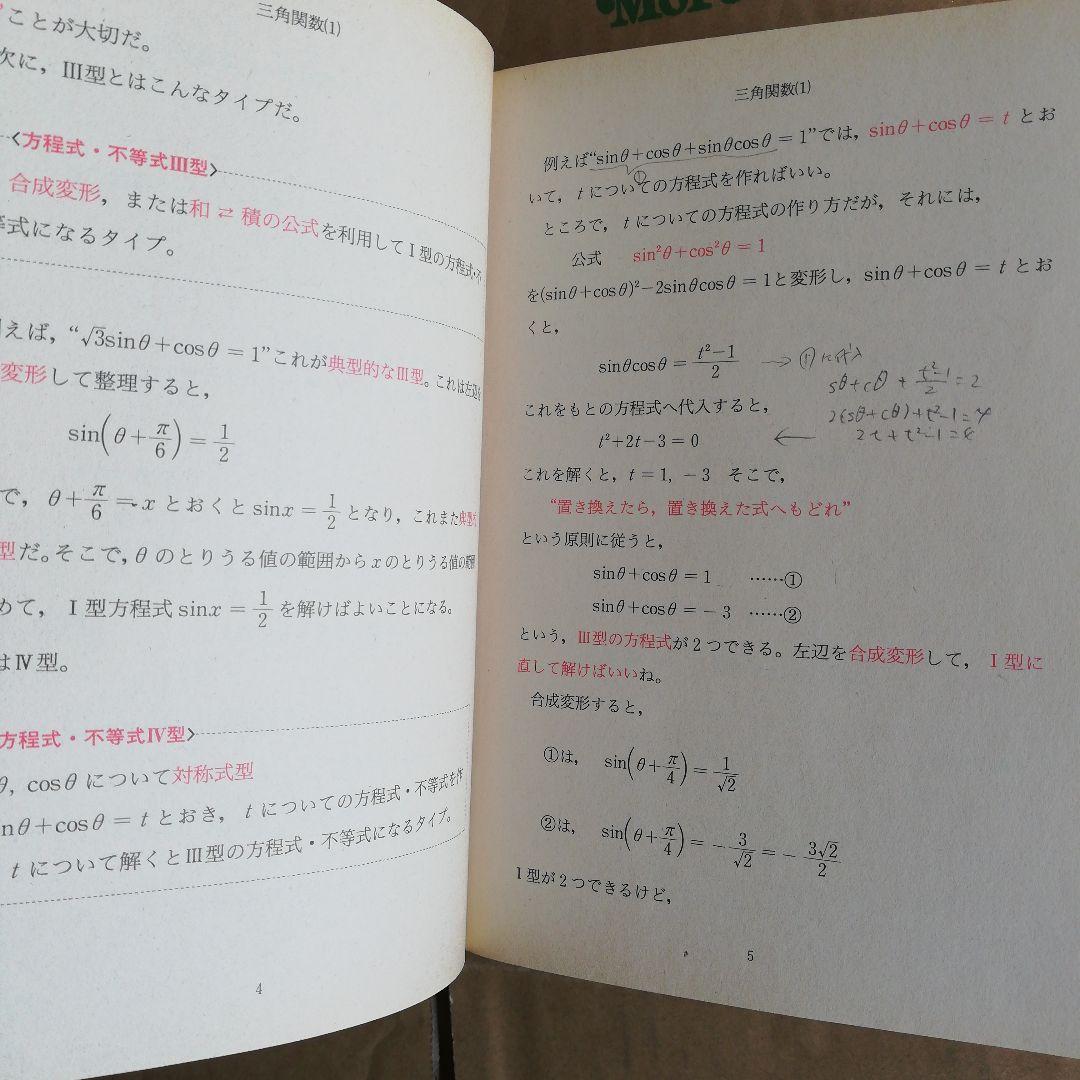 三角関数(1)
ことが大切だ。
次に，Ⅲ型とはこんなタイプだ。
<方程式・不等式Ⅲ型>
合成変形，または和⇄積の公式を利用してⅠ型の方程式・不
等式になるタイプ。
えば，“√3sinθ+cosθ=1”これが典型的なⅢ型。これは左辺を
変形して整理すると，
sin(θ+π/6)=1/2
で，θ+π/6=xとおくとsinx=1/2となり，これまた典型的
型だ。そこで，θのとりうる値の範囲からxのとりうる値の範囲
めて，Ⅰ型方程式sinx=1/2を解けばよいことになる。
はⅣ型。
方程式・不等式Ⅳ型>
θ, cosθについて対称式型
nθ+cosθ=tとおき，tについての方程式・不等式を作
tについて解くとⅢ型の方程式・不等式になるタイプ。
4
Mor
三角関数(1)
例えば“sinθ+cosθ+sinθcosθ=1”では，sinθ+cosθ=tとお
①
いて，tについての方程式を作ればいい。
ところで，tについての方程式の作り方だが，それには，
公式 sin²θ+cos²θ=1
を(sinθ+cosθ)²−2sinθcosθ=1と変形し，sinθ+cosθ=tとお
くと，
sinθcosθ=(t²−1)/2 → ①に代入
sθ+cθ+(t²-1)/2=2
これをもとの方程式へ代入すると，
2(sθ+cθ)+t²-1=4
t²+2t−3=0 ←
2t+t²-1=
これを解くと，t=1, −3 そこで，
“置き換えたら，置き換えた式へもどれ”
という原則に従うと，
sinθ+cosθ=1 ……①
sinθ+cosθ=−3 ……②
という，Ⅲ型の方程式が2つできる。左辺を合成変形して，Ⅰ型に
直して解けばいいね。
合成変形すると，
①は，sin(θ+π/4)=1/√2
②は，sin(θ+π/4)=−3/√2=−3√2/2
Ⅰ型が2つできるけど，
5